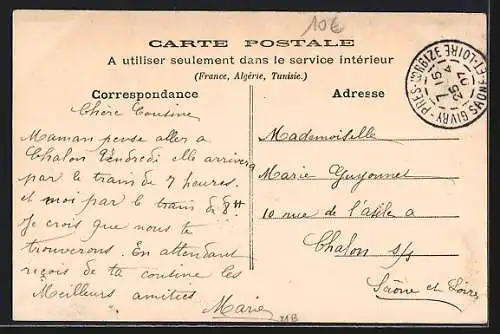 10€
CARTE POSTALE
A utiliser seulement dans le service intérieur
(France, Algérie, Tunisie.)
Correspondance
Chère Cousine
Maman pense aller a
Chalon Vendredi elle arrivera
par le train de 7 heures.
et moi par le train de
Je crois que nous te
trouverons. En attendant
reçois de ta cousine les
Meilleurs amitiés
Marie
MB
Adresse
Mademoiselle
Marie Guyonnet
10 rue de l'asile a
Chalon s/s
Saône et Loire
GIVRY-PRÈS-
SAÔNE-ET-LOIRE